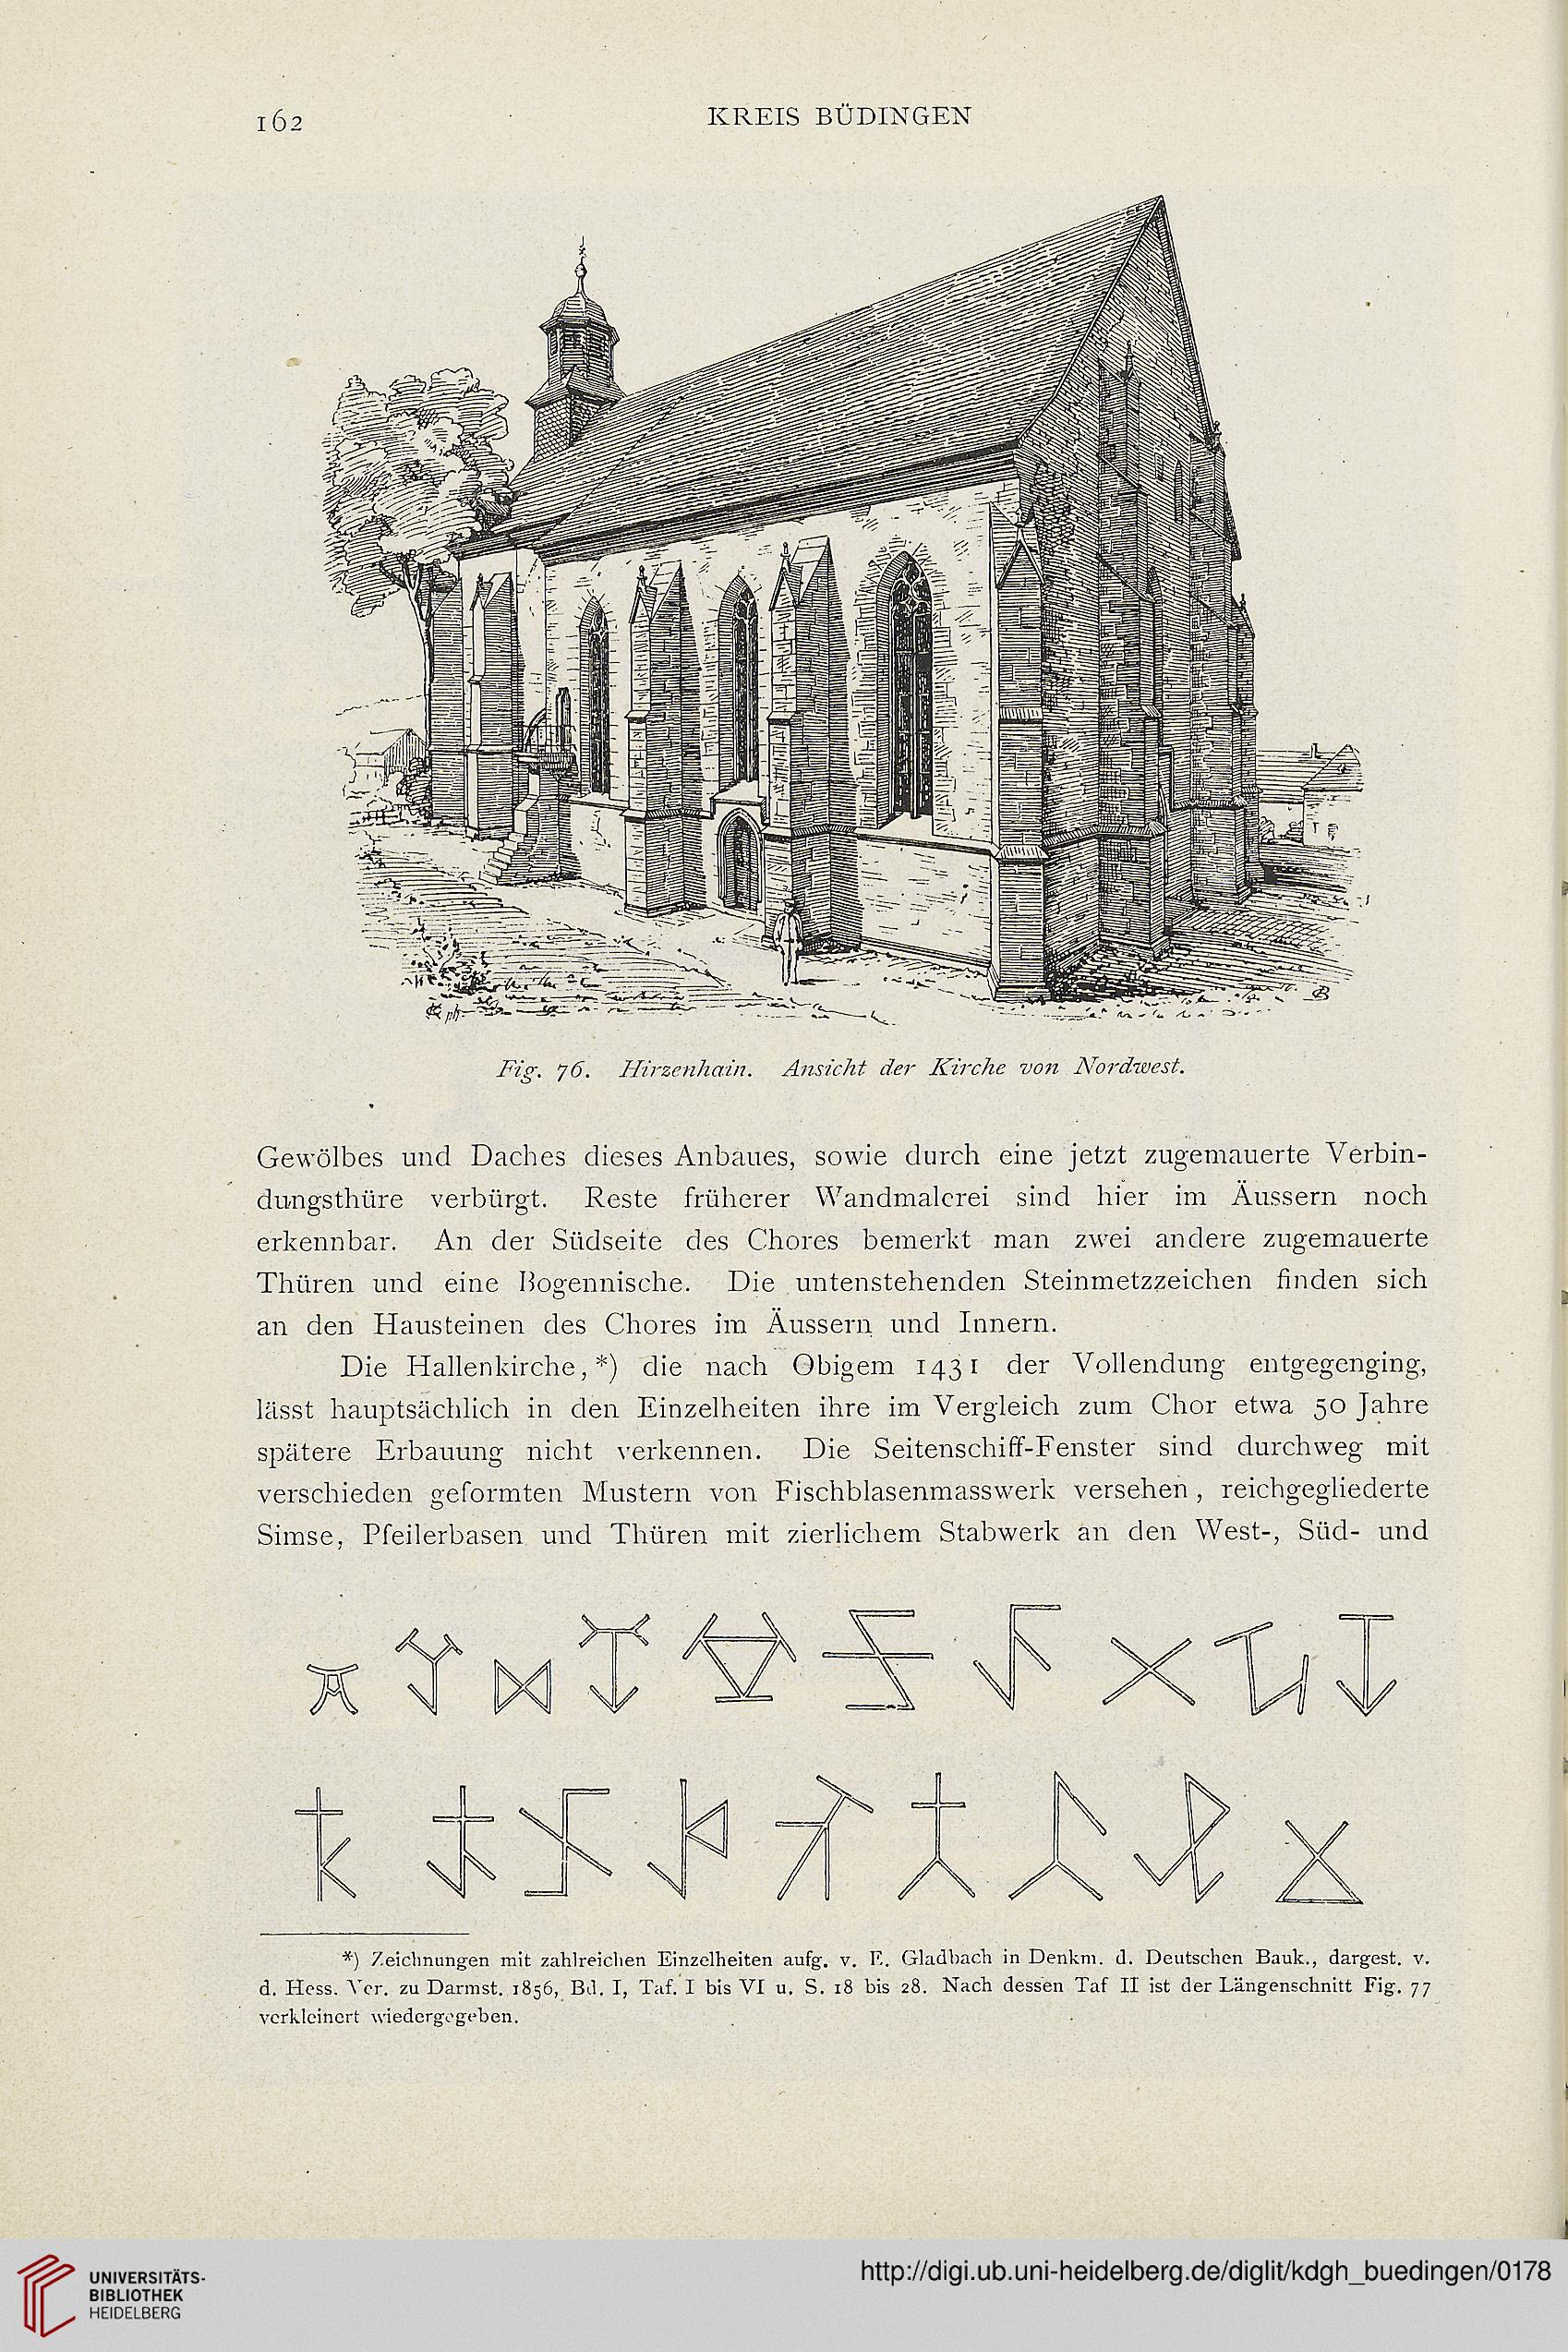 162
KREIS BÜDINGEN
Fig. 76. Hirzenhain. Ansicht der Kirche von Nordwest.
Gewölbes und Daches dieses Anbaues, sowie durch eine jetzt zugemauerte Verbin-
dungsthüre verbürgt. Reste früherer Wandmalerei sind hier im Äussern noch
erkennbar. An der Südseite des Chores bemerkt man zwei andere zugemauerte
Thüren und eine Bogennische. Die untenstehenden Steinmetzzeichen finden sich
an den Hausteinen des Chores im Äussern und Innern.
Die Hallenkirche,*) die nach Obigem 1431 der Vollendung entgegenging,
lässt hauptsächlich in den Einzelheiten ihre im Vergleich zum Chor etwa 50 Jahre
spätere Erbauung nicht verkennen. Die Seitenschiff-Fenster sind durchweg mit
verschieden geformten Mustern von Fischblasenmasswerk versehen, reichgegliederte
Simse, Pfeilerbasen und Thüren mit zierlichem Stabwerk an den West-, Süd- und
*) Zeichnungen mit zahlreichen Einzelheiten aufg. v. E. Gladbach in Denkm. d. Deutschen Bauk., dargest. v.
d. Hess. Ver. zu Darmst. 1856, Bd. I, Taf. I bis VI u. S. 18 bis 28. Nach dessen Taf II ist der Längenschnitt Fig. 77
verkleinert wiedergegeben.
UNIVERSITÄTS-
BIBLIOTHEK
HEIDELBERG
http://digi.ub.uni-heidelberg.de/diglit/kdgh_buedingen/0178